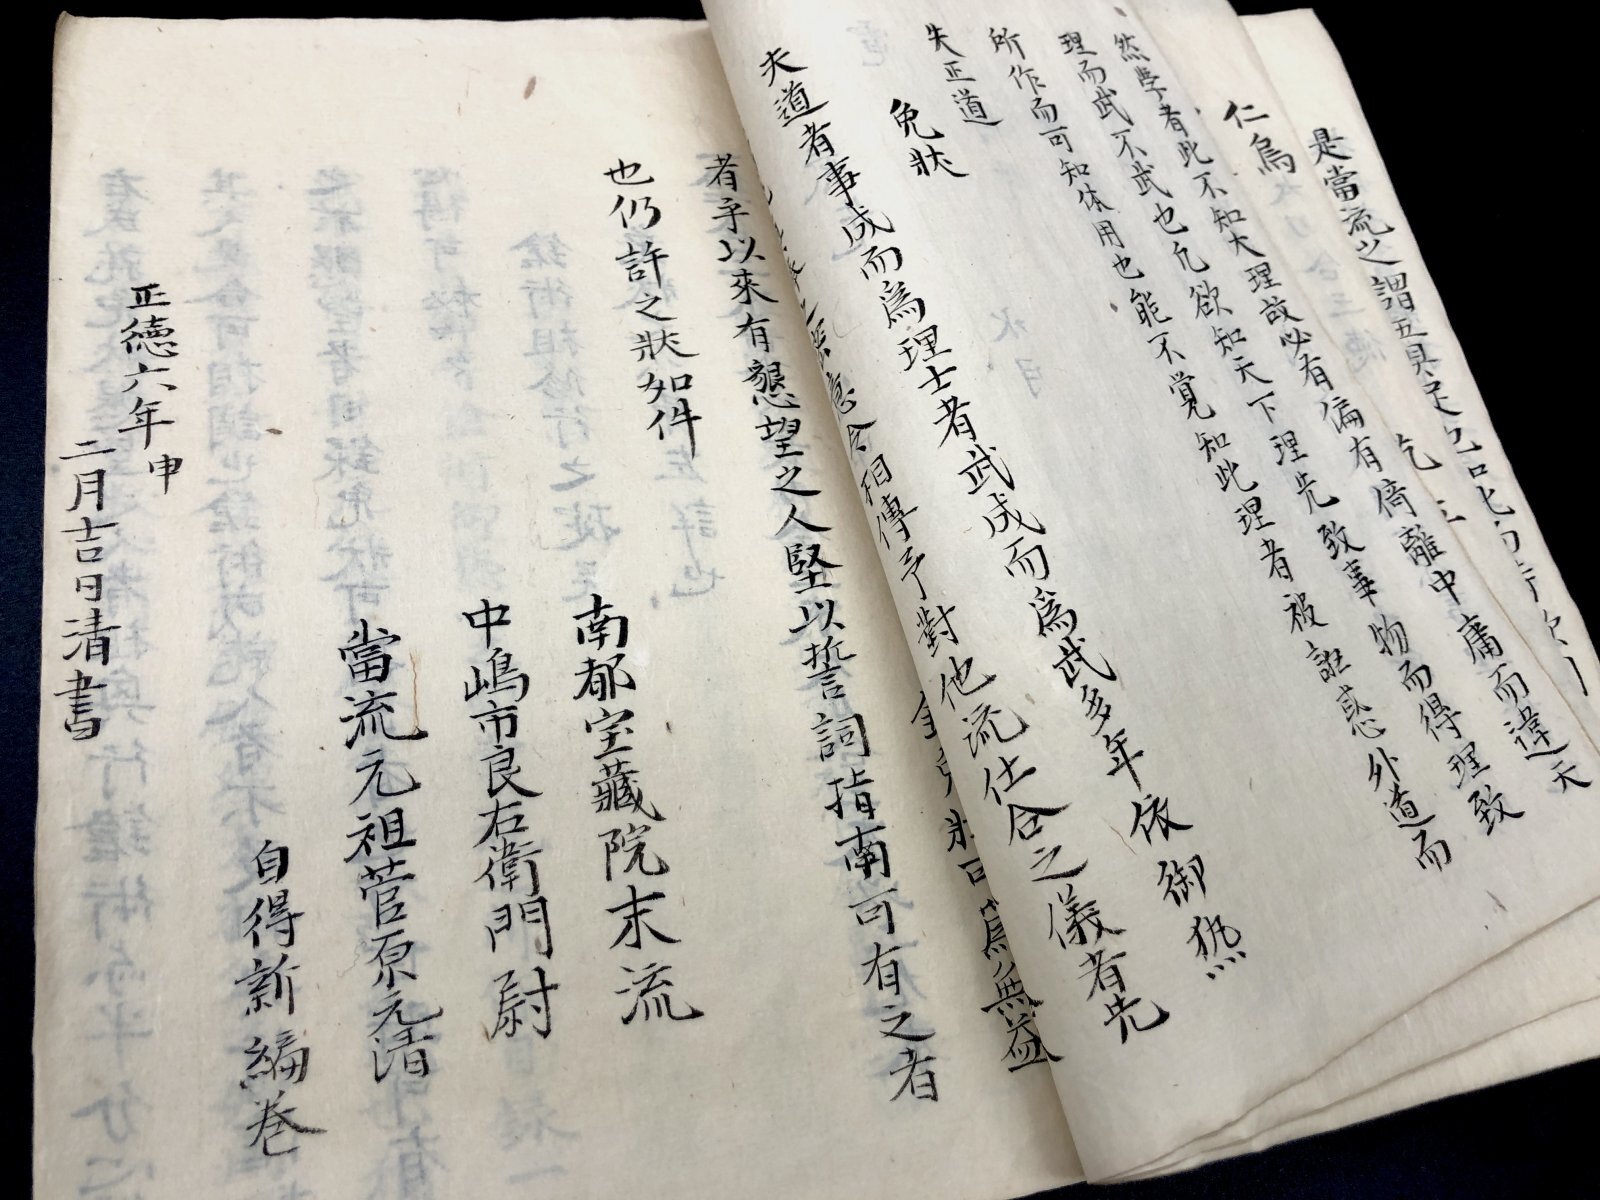 是當流之謂五具足
仁為
然学者此不知大理故必有偏有倚離中庸而違天
理而武不武也乞欲知天下理先致事物而得理致
所作而可知体用也能不覚知此理者被誑惑外道而
失正道
免状
夫道者事成而為理士者武成而為武多年依御㷀
相傳予對他流仕合之儀者先
為無益
者乎以來有懇望之人堅以誓詞指南可有之者
也仍許之状如件
南都宝蔵院末流
中嶋市良右衛門尉
當流元祖菅原元清
自得新編巻
正徳六年申
二月吉日清書